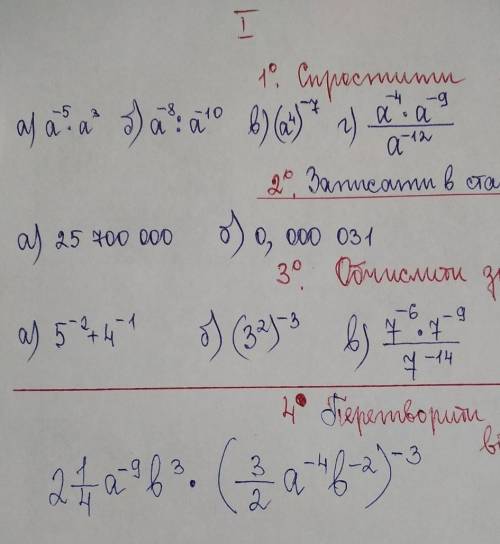 I
1°. Спростити
а) a⁻⁵ · a³ б) a⁻⁸ : a⁻¹⁰ в) (a⁴)⁻⁷ г) (a⁻⁴ · a⁻⁹)/a⁻¹²
2°. Записати в ста
а) 25 700 000 б) 0, 000 031
3°. Обчислити з
а) 5⁻² + 4⁻¹ б) (3²)⁻³ в) (7⁻⁶ · 7⁻⁹)/7⁻¹⁴
4° Перетворити
ві
2 1/4 a⁻⁹ b³ · (3/2 a⁻⁴ b⁻²)⁻³